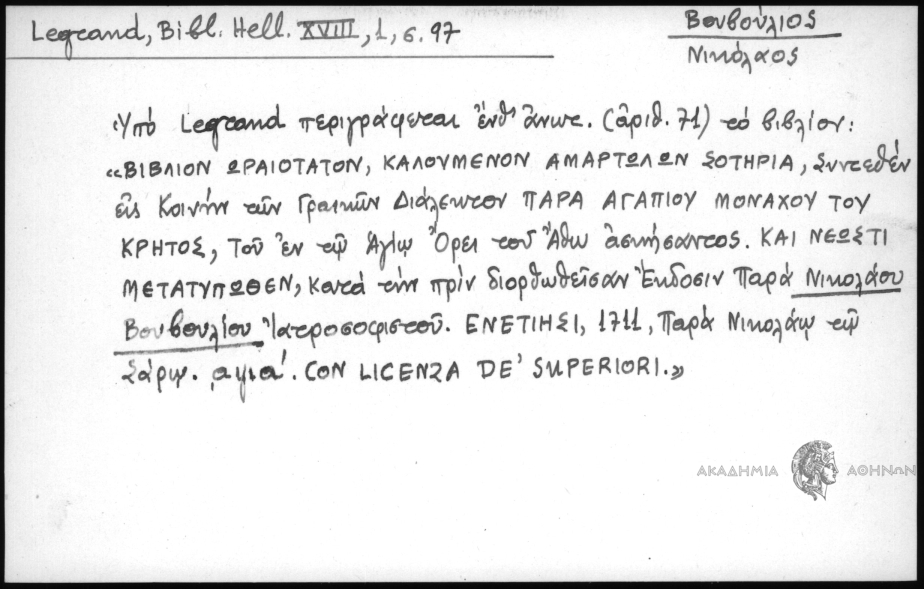 Legrand, Bibl. Hell. XVIII, 1, σ. 97
Βουβούλιος
Νικόλαος
Ὑπὸ Legrand περιγράφεται ἔνθ' ἄνωτ. (ἀριθ. 71) τὸ βιβλίον:
«ΒΙΒΛΙΟΝ ΩΡΑΙΟΤΑΤΟΝ, ΚΑΛΟΥΜΕΝΟΝ ΑΜΑΡΤΩΛΩΝ ΣΩΤΗΡΙΑ, Συντεθὲν
εἰς Κοινὴν τῶν Γραικῶν Διάλεκτον ΠΑΡΑ ΑΓΑΠΙΟΥ ΜΟΝΑΧΟΥ ΤΟΥ
ΚΡΗΤΟΣ, Τοῦ ἐν τῷ Ἁγίῳ Ὄρει τοῦ Ἄθω ἀσκήσαντος. ΚΑΙ ΝΕΩΣΤΙ
ΜΕΤΑΤΥΠΩΘΕΝ, Κατὰ τὴν πρὶν διορθωθεῖσαν Ἔκδοσιν Παρὰ Νικολάου
Βουβουλίου Ἰατροσοφιστοῦ. ΕΝΕΤΙΗΣΙ, 1711, Παρὰ Νικολάῳ τῷ
Σάρῳ. ͵αψια΄. CON LICENZA DE' SUPERIORI.»
ΑΚΑΔΗΜΙΑ ΑΘΗΝΩΝ